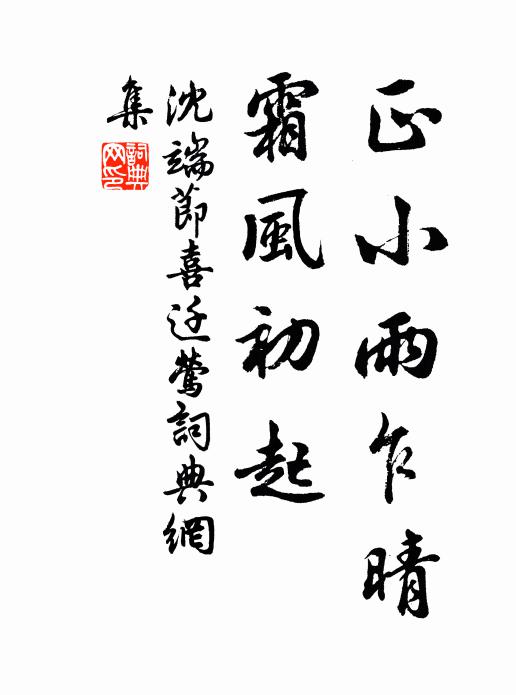 正小雨乍晴
霜風初起
沈端節喜迁鶯詞典網
集
詞典
网印